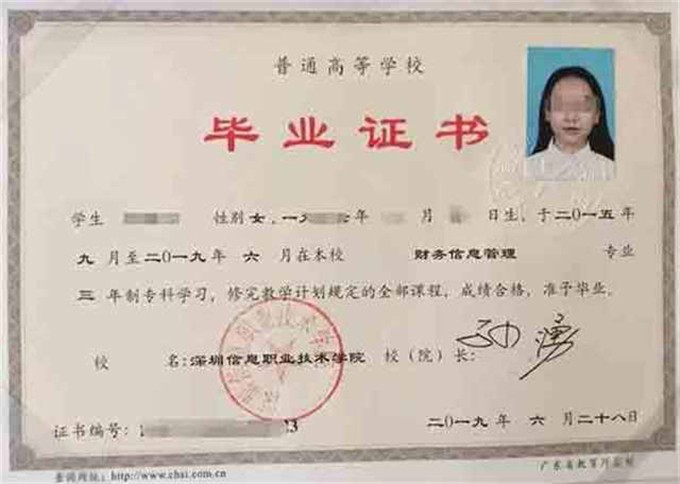 普通高等学校
毕业证书
学生 性别女，一九 年 月 日生，于二〇一五年
九月至二〇一九年 六月在本校 财务信息管理 专业
三年制专科学习，修完教学计划规定的全部课程，成绩合格，准予毕业。
校 名：深圳信息职业技术学院 校（院）长：
证书编号：1 3 二〇一九年 六月二十八日
查询网址：http://www.chsi.com.cn 广东省教育厅监制